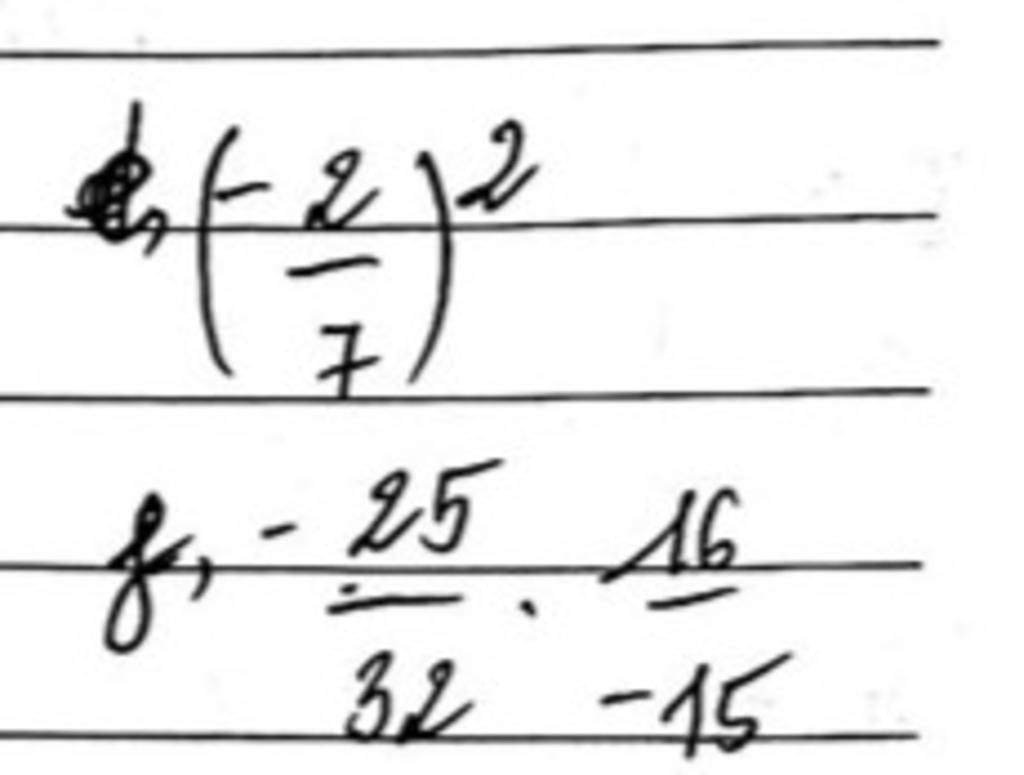 d, (-2/7)^2
f, -25/32 . 16/-15